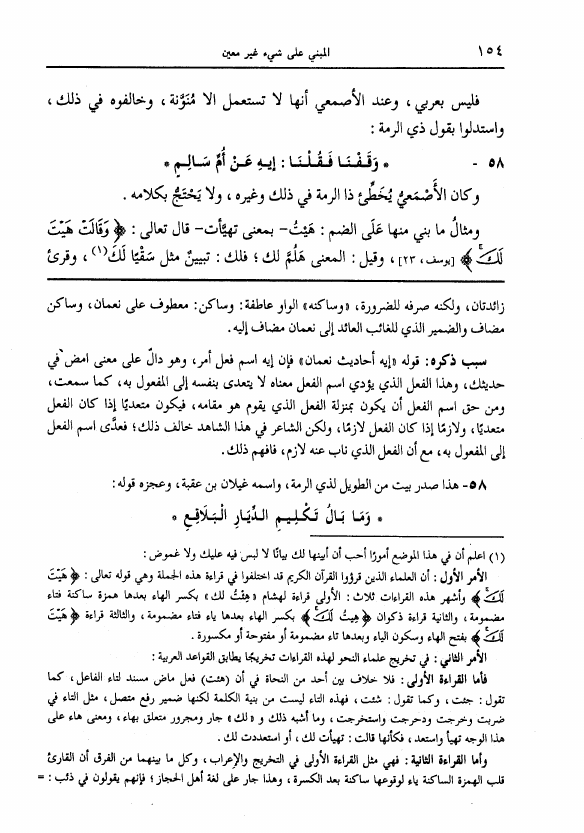 ١٥٤ المبني على شيء غير معين
فليس بعربي، وعند الأصمعي أنها لا تستعمل الا مُنَوَّنة، وخالفوه في ذلك،
واستدلوا بقول ذي الرمة:
٥٨ - * وَقَفْنَا فَقُلْنَا: إيهِ عَنْ أُمِّ سَالِمٍ *
وكان الأَصْمَعيُّ يُخَطِّئ ذا الرمة في ذلك وغيره، ولا يَحْتَجُّ بكلامه.
ومثالُ ما بني منها عَلَى الضم: هَيْتُ- بمعنى تهيَّأت- قال تعالى: ﴿وَقَالَتْ هَيْتَ
لَكَۚ﴾ [يوسف، ٢٣]، وقيل: المعنى هَلُمَّ لك؛ فلك: تبيينٌ مثل سَقْيًا لَكَ(١)، وقرئ
زائدتان، ولكنه صرفه للضرورة، «وساكنه» الواو عاطفة: وساكن: معطوف على نعمان، وساكن
مضاف والضمير الذي للغائب العائد إلى نعمان مضاف إليه.
سبب ذكره: قوله «إيه أحاديث نعمان» فإن إيه اسم فعل أمر، وهو دالّ على معنى امض في
حديثك، وهذا الفعل الذي يؤدي اسم الفعل معناه لا يتعدى بنفسه إلى المفعول به، كما سمعت،
ومن حق اسم الفعل أن يكون بمنزلة الفعل الذي يقوم هو مقامه، فيكون متعديًا إذا كان الفعل
متعديًا، ولازمًا إذا كان الفعل لازمًا، ولكن الشاعر في هذا الشاهد خالف ذلك؛ فعدَّى اسم الفعل
إلى المفعول به، مع أن الفعل الذي ناب عنه لازم، فافهم ذلك.
٥٨- هذا صدر بيت من الطويل لذي الرمة، واسمه غيلان بن عقبة، وعجزه قوله:
* وَمَا بَالُ تَكْلِيمِ الدِّيَارِ الْبَلَاقِعِ *
(١) اعلم أن في هذا الموضع أمورًا أحب أن أبينها لك بيانًا لا لبس فيه عليك ولا غموض:
الأمر الأول: أن العلماء الذين قرؤوا القرآن الكريم قد اختلفوا في قراءة هذه الجملة وهي قوله تعالى: ﴿هَيْتَ
لَكَۚ﴾ وأشهر هذه القراءات ثلاث: الأولى قراءة لهشام «هِئتُ لك» بكسر الهاء بعدها همزة ساكنة فتاء
مضمومة، والثانية قراءة ذكوان ﴿هِيتُ لَكَۚ﴾ بكسر الهاء بعدها ياء فتاء مضمومة، والثالثة قراءة ﴿هَيْتَ
لَكَۚ﴾ بفتح الهاء وسكون الياء وبعدها تاء مضمومة أو مفتوحة أو مكسورة.
الأمر الثاني: في تخريج علماء النحو لهذه القراءات تخريجًا يطابق القواعد العربية:
فأما القراءة الأولى: فلا خلاف بين أحد من النحاة في أن (هئت) فعل ماض مسند لتاء الفاعل، كما
تقول: جئت، وكما تقول: شئت، فهذه التاء ليست من بنية الكلمة لكنها ضمير رفع متصل، مثل التاء في
ضربت وخرجت ودحرجت واستخرجت، وما أشبه ذلك و «لك» جار ومجرور متعلق بهاء، ومعنى هاء على
هذا الوجه تهيأ واستعد، فكأنها قالت: تهيأت لك، أو استعددت لك.
وأما القراءة الثانية: فهي مثل القراءة الأولى في التخريج والإعراب، وكل ما بينهما من الفرق أن القارئ
قلب الهمزة الساكنة ياء لوقوعها ساكنة بعد الكسرة، وهذا جار على لغة أهل الحجاز؛ فإنهم يقولون في ذئب: =